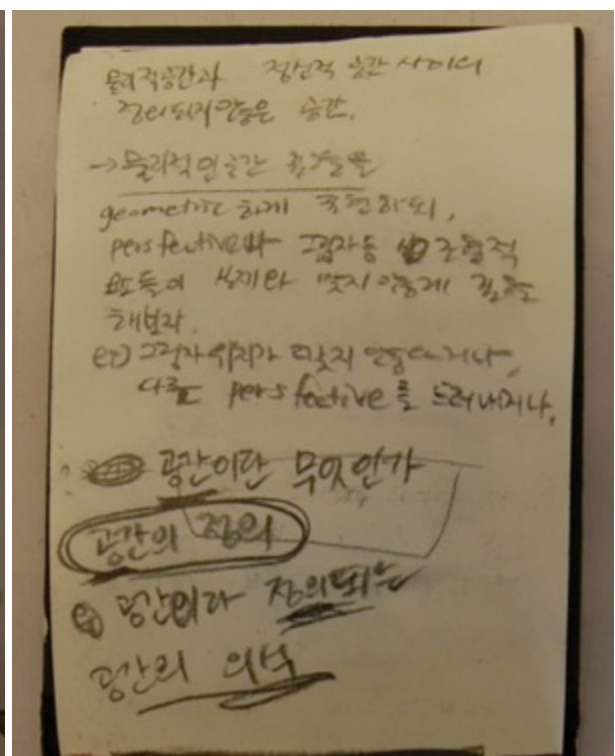 물리적공간과 정신적 공간 사이의
정의되지않은 공간.
→물리적인공간 구조들을
geometric 하게 표현하되,
persfective나 그림자등 조형적
요소들이 실제와 맞지 않게 표현
해보자.
ex) 그림자 위치가 맞지 않는다거나,
다른 persfective를 드러내거나.
공간이란 무엇인가
공간의 정의
공간이라 정의되는
공간의 의식